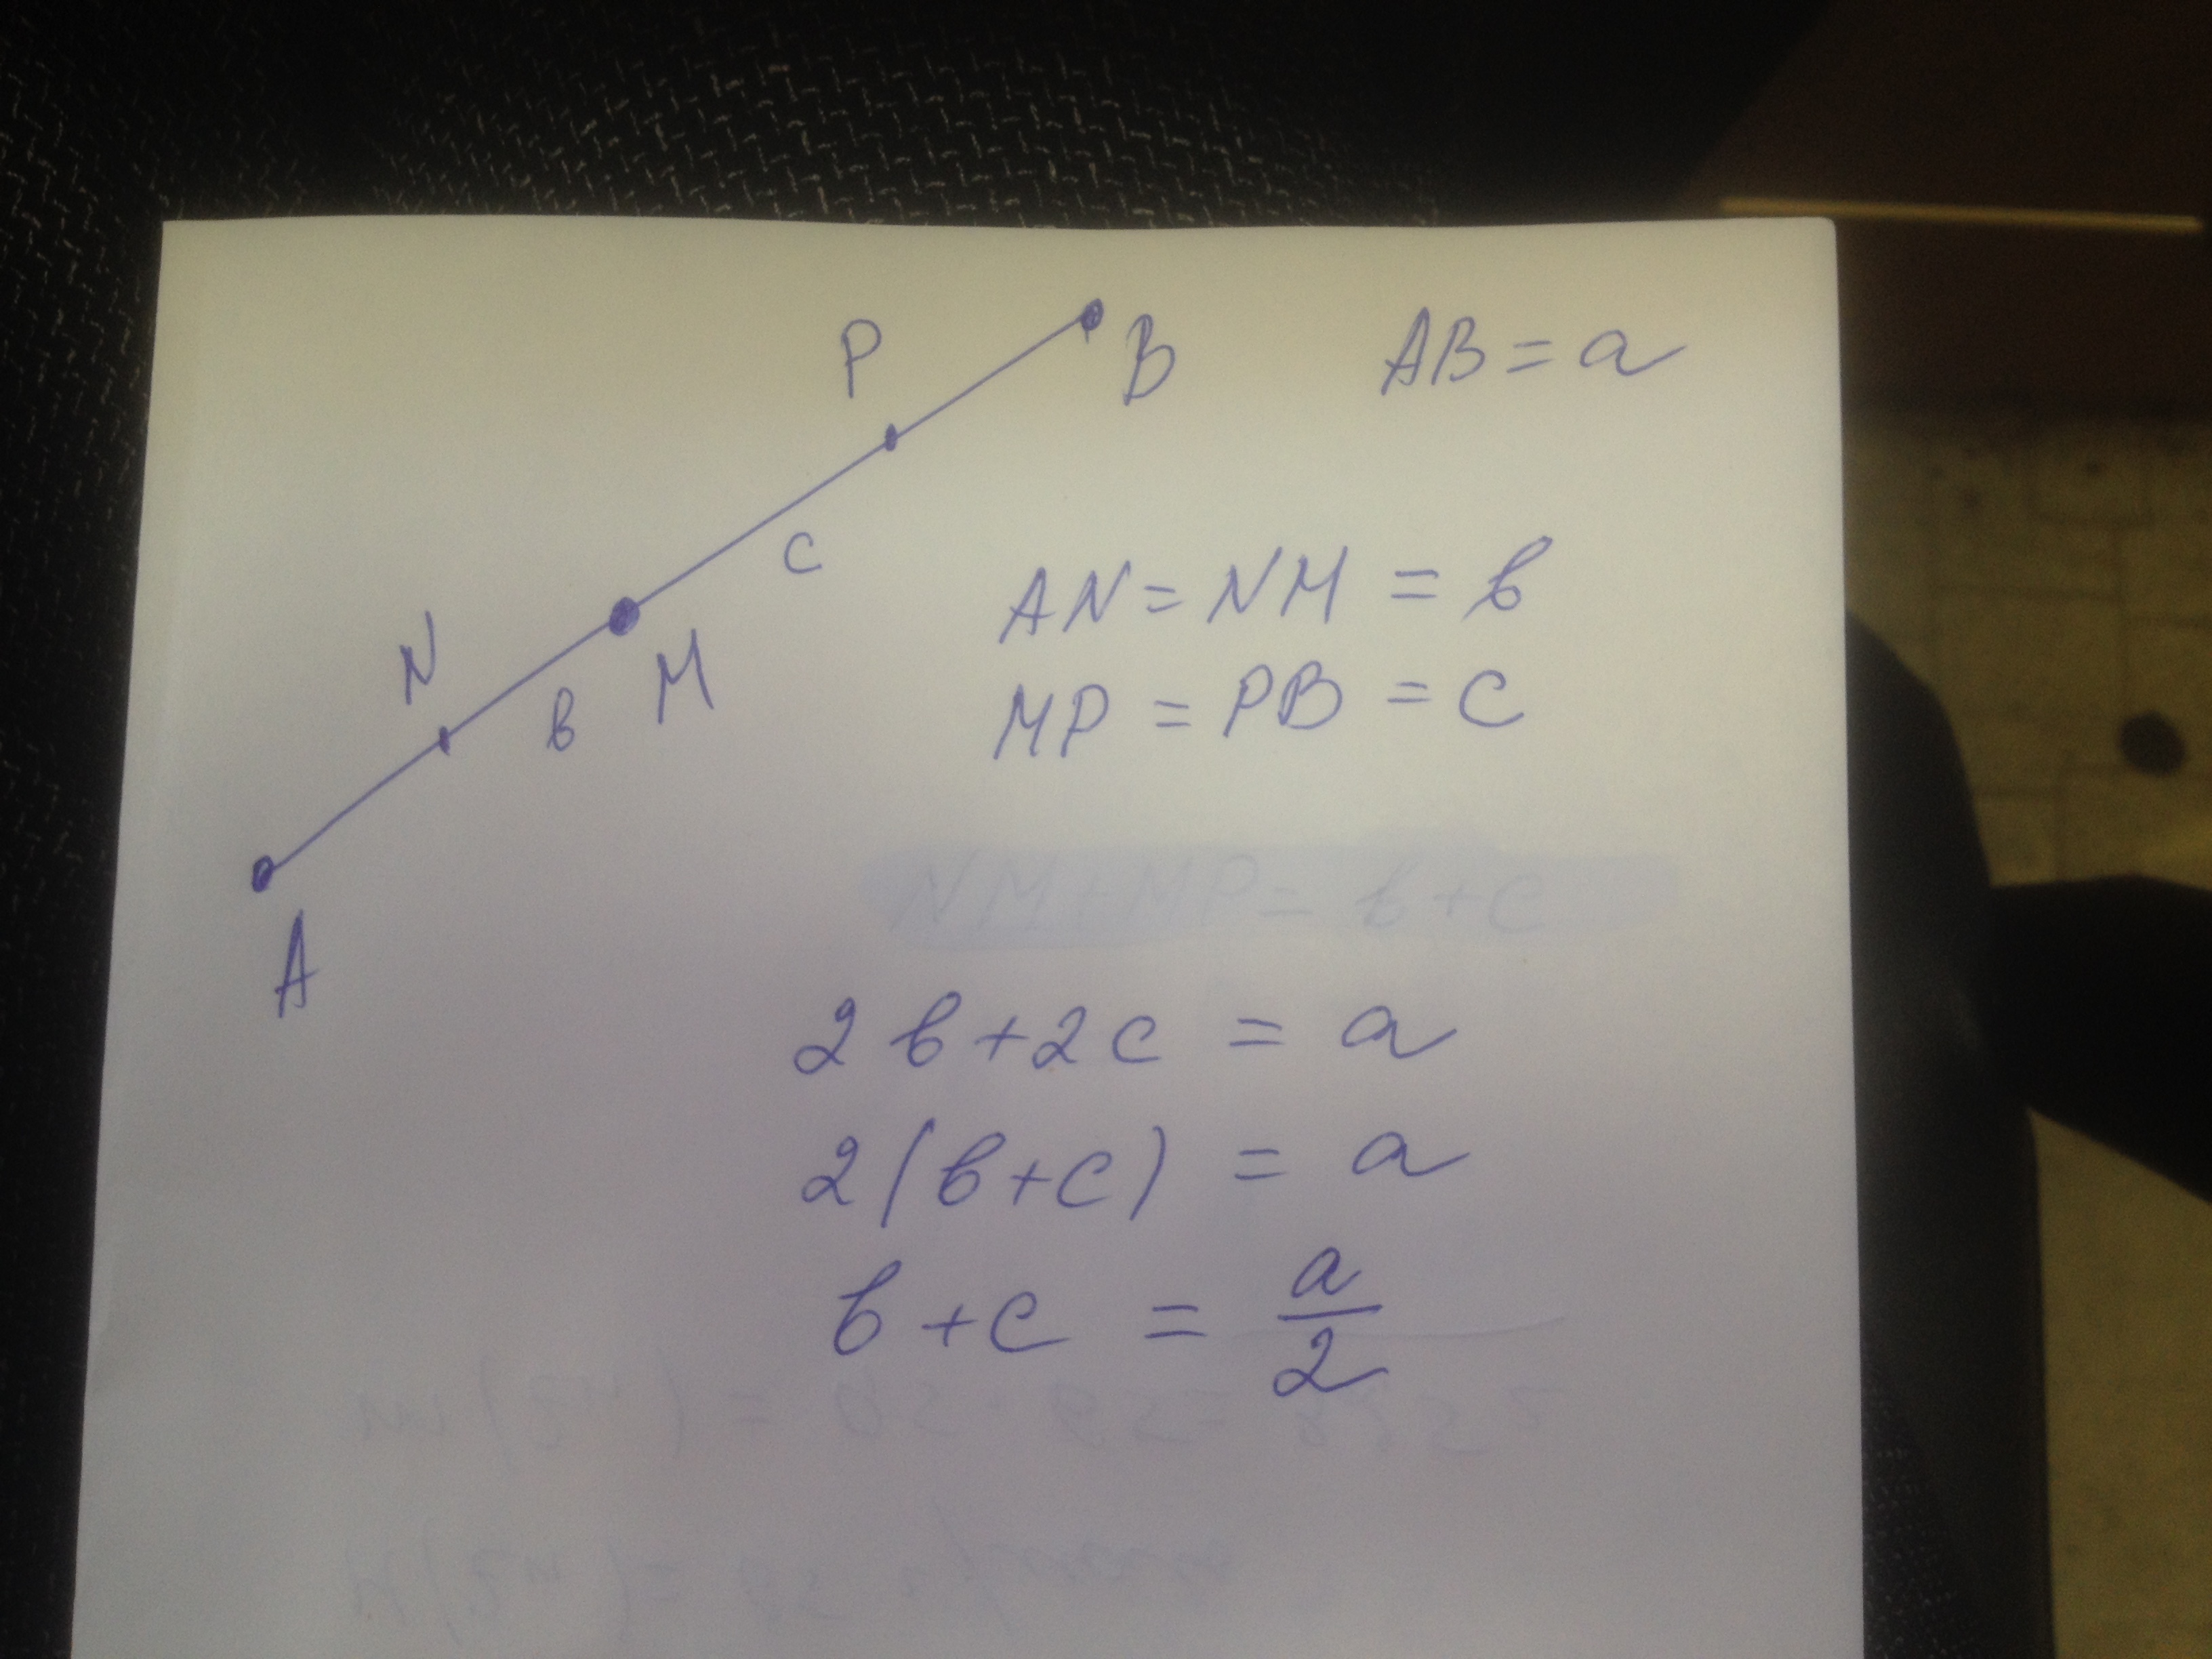 P
B
AB = a
C
N
в
M
AN = NM = в
MP = PB = c
A
NM+MP= в+c
2в+2c = a
2(в+c) = a
в+c = a/2